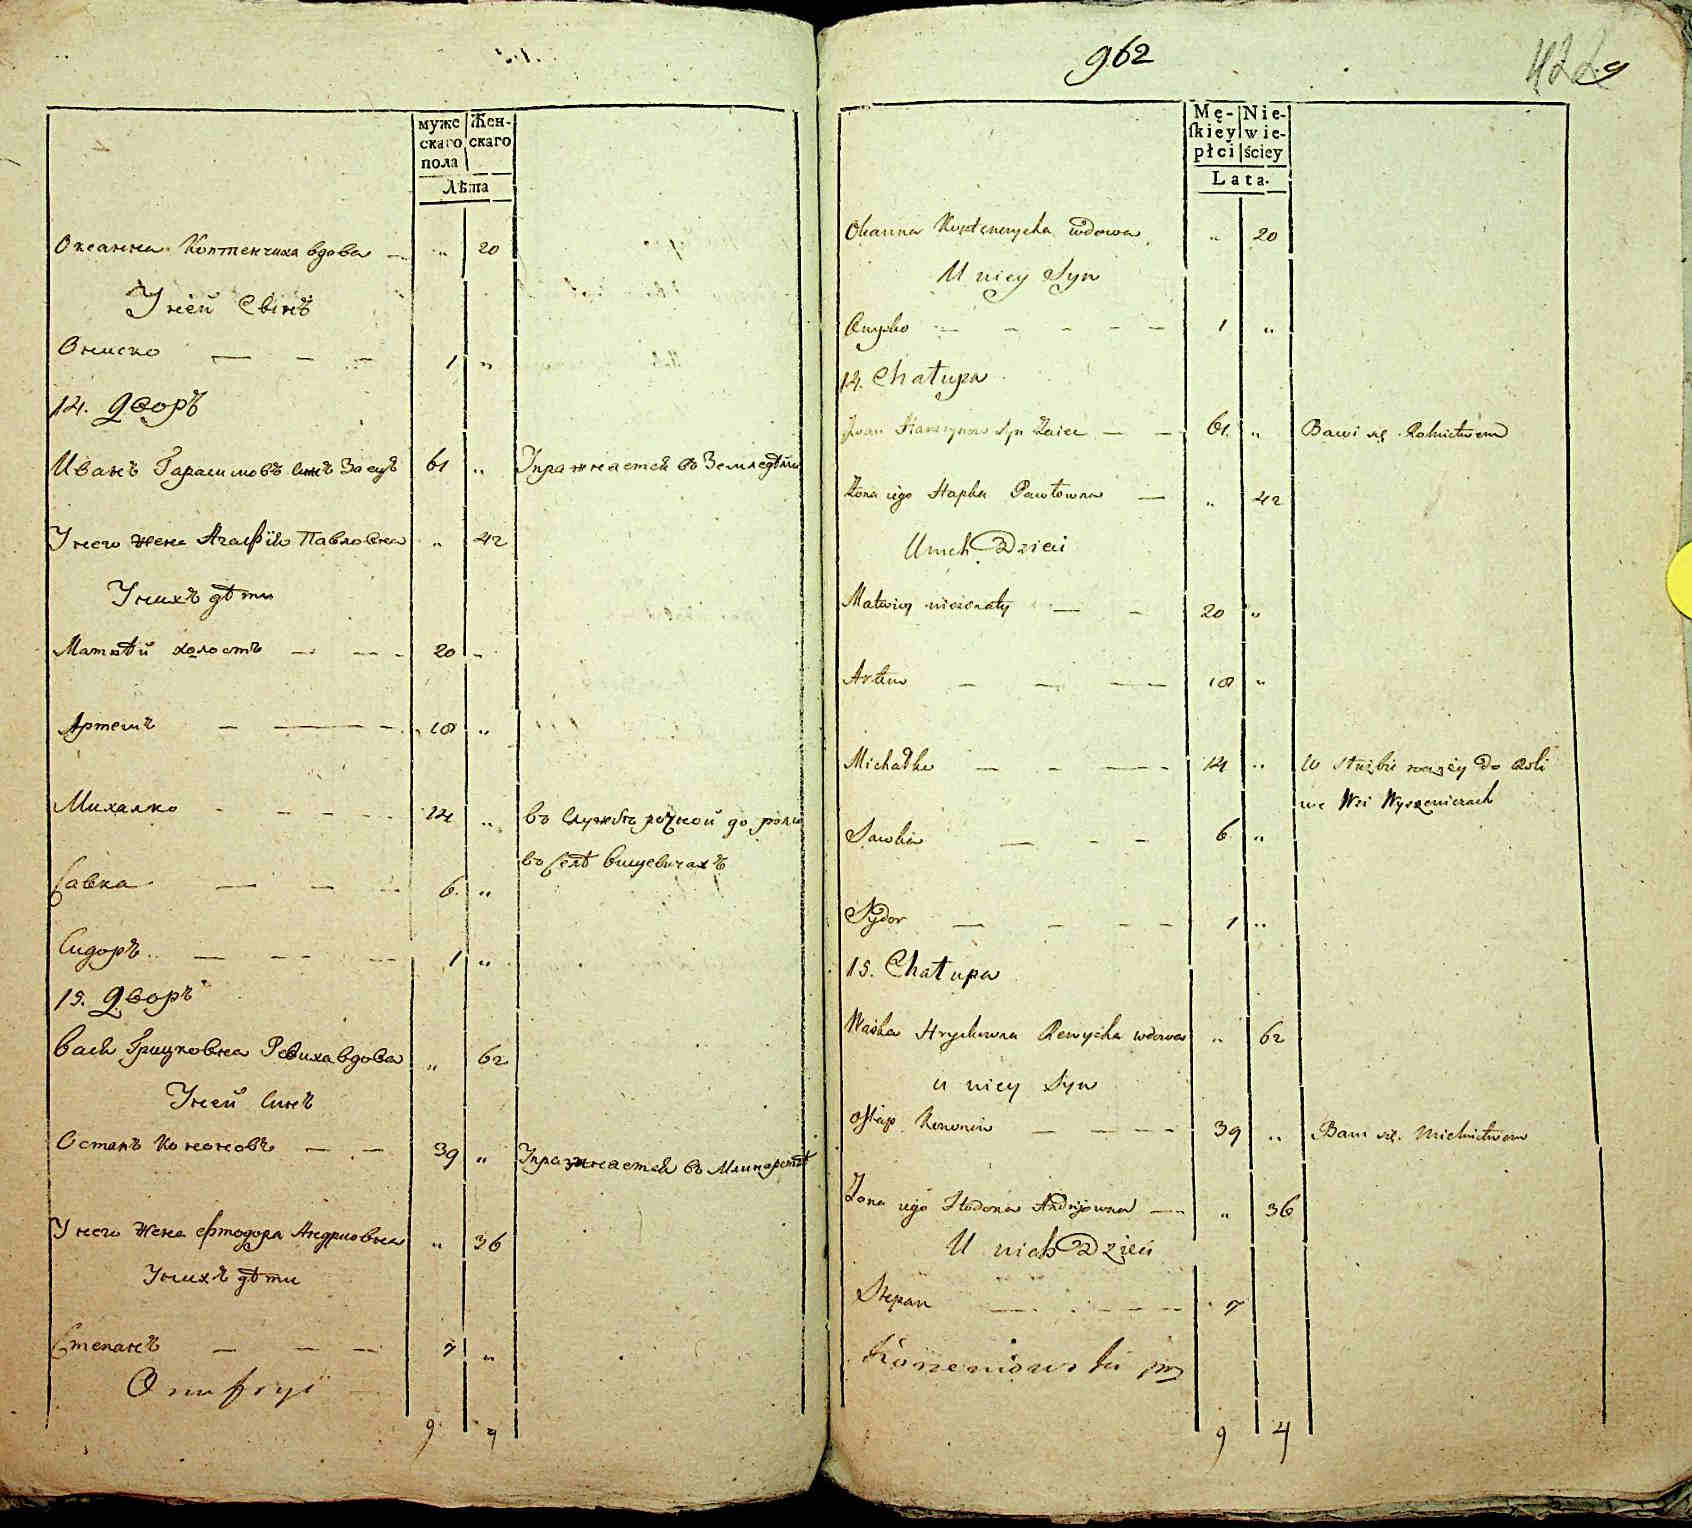 муже Жен-
скаго скаго
пола
Лѣта
Оксанна Коптенчиха вдова — „ 20
У ней Синъ
Ониско — — — 1 „
14. Дворъ
Иванъ Гарасимовъ Синъ Заецъ 61 „ Упражняется въ Земледѣли
У него жена Агафія Павловна „ 42
У нихъ дѣти
Матвѣй холостъ — — 20 „
Артемъ — — 18 „
Михалко — — — 14 „ въ Службѣ рочной до роли
въ Селѣ Вишевичахъ
Савка — — — 6 „
Сидоръ — — — 1 „
15. Дворъ
Вася Грицковна Ревиха вдова „ 62
У ней Синъ
Остапъ Кононовъ — — 39 „ Упражняется въ Млинарствѣ
У него жена Фтодора Андриовна „ 36
У нихъ дѣти
Степанъ — — — 7 „
Onufryi
9 4
962
422
9
Mę- Nie-
skiey wie-
płci ściey
Lata.
Oxanna Koptenczycha wdowa „ 20
U niey Syn
Onysko — — — — 1 „
14. Chałupa
Jwan Harasymow Syn Zaiec — — 61 „ Bawi się Rolnictwem
Żona iego Hapka Pawłowna — „ 42
U nich Dzieci
Matwiy nieżonaty — — 20 „
Artem — — — 18 „
Michałko — — — 14 „ w służbie roczney do Roli
we Wsi Wyszewiczach
Sawka — — — 6 „
Sydor — — — — 1 „
15. Chałupa
Waśka Hryckowna Rewycha wdowa „ 62
u niey Syn
Ostap Kononow — — — 39 „ Bawi się Mielnictwem
Żona iego Ftodora Andryjowna — „ 36
U nich Dzieci
Stepan — — — 7
Korzeniowski
9 4